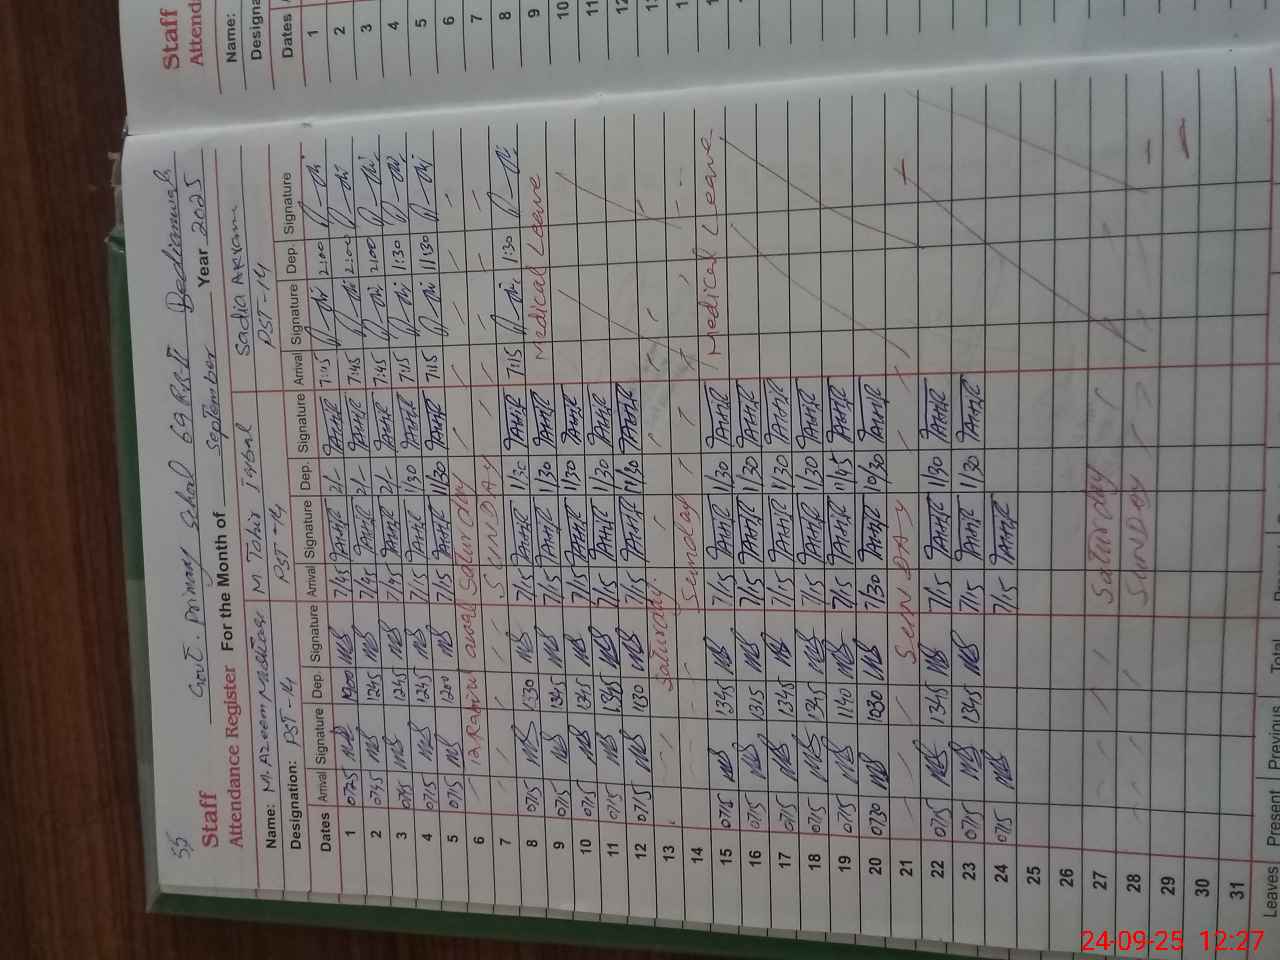 55
Govt. Primary School 69 RB-II Bedianwala
Staff
Attendance Register For the Month of September Year 2025
Name: M. Azeem M. Tahir Iqbal Sadia Akram
Designation: PST-14 PST-14 PST-14
Dates Arrival Signature Dep. Signature Arrival Signature Dep. Signature Arrival Signature Dep. Signature
1 0725 1400 7/45 TAHIR 2/- TAHIR 7:45 2:00
2 0745 1245 7/45 TAHIR 2/- TAHIR 7:45 2:00
3 1245 7/45 TAHIR 2/- TAHIR 7:45 2:00
4 0715 1245 7/15 TAHIR 1/30 TAHIR 7:15 1:30
5 0715 1200 7/15 TAHIR 11/30 TAHIR 7:15 11:30
6 12 Rabi ul awal Saturday
7 SUNDAY
8 0715 1330 7/15 TAHIR 1/30 TAHIR 7:15 1:30
9 0715 1345 7/15 TAHIR 1/30 TAHIR Medical Leave
10 0715 1345 7/15 TAHIR 1/30 TAHIR
11 0715 1345 7/15 TAHIR 1/30 TAHIR
12 0715 1130 7/15 TAHIR 11/30 TAHIR
13 Saturday.
14 Sunday
15 0715 1345 7/15 TAHIR 1/30 TAHIR Medical Leave
16 0715 7/15 TAHIR 1/30 TAHIR
17 0715 1345 7/15 TAHIR 1/30 TAHIR
18 0715 1345 7/15 TAHIR 1/30 TAHIR
19 0715 1140 7/15 TAHIR 11/45 TAHIR
20 0730 1030 7/30 TAHIR 10/30 TAHIR
21 SUNDAY
22 0715 1345 7/15 TAHIR 1/30 TAHIR
23 0715 1345 7/15 TAHIR 1/30 TAHIR
24 0715 7/15 TAHIR
25
26
27 Saturday
28 SUNDAY
29
30
31
Leaves Present Previous Total
Staff
Attend
Name:
Designa
Dates
1
2
3
4
5
6
7
8
9
10
11
12
24-09-25 12:27